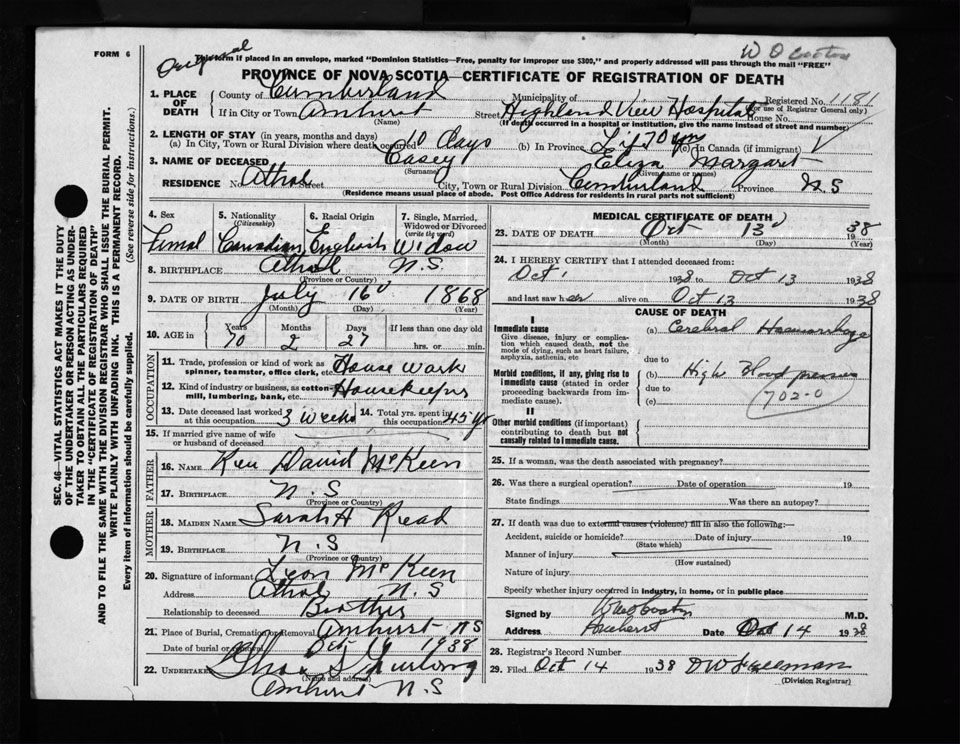 FORM 6
Original
W D
This form if placed in an envelope, marked "Dominion Statistics—Free, penalty for improper use $300," and properly addressed will pass through the mail "FREE"
PROVINCE OF NOVA SCOTIA—CERTIFICATE OF REGISTRATION OF DEATH
1. PLACE OF DEATH County of Cumberland Municipality of Registered No. 1181
(For use of Registrar General only)
If in City or Town Amhurst Street Highland View Hospital House No.
(Name) (If death occurred in a hospital or institution, give the name instead of street and number)
2. LENGTH OF STAY (in years, months and days)
(a) In City, Town or Rural Division where death occurred 10 Days (b) In Province Life 70 yrs (c) In Canada (if immigrant)
3. NAME OF DECEASED Casey Eliza Margaret
(Surname) (Given name or names)
RESIDENCE No. Athol Street City, Town or Rural Division Cumberland Province N S
(Residence means usual place of abode. Post Office Address for residents in rural parts not sufficient)
SEC. 46—VITAL STATISTICS ACT MAKES IT THE DUTY
OF THE UNDERTAKER OR PERSON ACTING AS UNDER-
TAKER TO OBTAIN ALL THE PARTICULARS REQUIRED
IN THE "CERTIFICATE OF REGISTRATION OF DEATH"
AND TO FILE THE SAME WITH THE DIVISION REGISTRAR WHO SHALL ISSUE THE BURIAL PERMIT.
WRITE PLAINLY WITH UNFADING INK. THIS IS A PERMANENT RECORD.
Every item of information should be carefully supplied. (See reverse side for instructions.)
4. Sex 5. Nationality (Citizenship) 6. Racial Origin 7. Single, Married, Widowed or Divorced (write the word)
Femal Canadian English Widow
8. BIRTHPLACE Athol N.S.
(Province or Country)
9. DATE OF BIRTH July 16 1868
(Month) (Day) (Year)
10. AGE in Years Months Days If less than one day old
70 2 27 hrs. or min.
OCCUPATION
11. Trade, profession or kind of work as spinner, teamster, office clerk, etc. House work
12. Kind of industry or business, as cotton-mill, lumbering, bank, etc. Housekeeper
13. Date deceased last worked at this occupation 3 weeks 14. Total yrs. spent in this occupation 45 yr
15. If married give name of wife or husband of deceased
FATHER
16. NAME Rev David McKeen
17. BIRTHPLACE N.S
(Province or Country)
MOTHER
18. MAIDEN NAME Sarah H Read
19. BIRTHPLACE N.S
(Province or Country)
20. Signature of informant Leon McKeen
Address Athol N.S
Relationship to deceased Brother
21. Place of Burial, Cremation or Removal Amhurst NS
Date of burial or removal Oct 1938
22. UNDERTAKER Chas S Furlong
(Name and address)
Amhurst N.S
MEDICAL CERTIFICATE OF DEATH
23. DATE OF DEATH Oct 13 1938
(Month) (Day) (Year)
24. I HEREBY CERTIFY that I attended deceased from:
Oct 1 1938 to Oct 13 1938
and last saw her alive on Oct 13 1938
CAUSE OF DEATH
I
Immediate cause (a) Cerebral Haemorrhage
Give disease, injury or complication which caused death, not the mode of dying, such as heart failure, asphyxia, asthenia, etc
due to
Morbid conditions, if any, giving rise to immediate cause (stated in order proceeding backwards from immediate cause). (b) High Blood pressure
due to
(c) 702-0
II
Other morbid conditions (if important) contributing to death but not causally related to immediate cause.
25. If a woman, was the death associated with pregnancy?
26. Was there a surgical operation? Date of operation 19
State findings Was there an autopsy?
27. If death was due to external causes (violence) fill in also the following:
Accident, suicide or homicide? Date of injury 19
(State which)
Manner of injury
(How sustained)
Nature of injury
Specify whether injury occurred in industry, in home, or in public place
Signed by M.D.
Address Amherst Date Oct 14 1938
28. Registrar's Record Number
29. Filed Oct 14 1938
(Division Registrar)